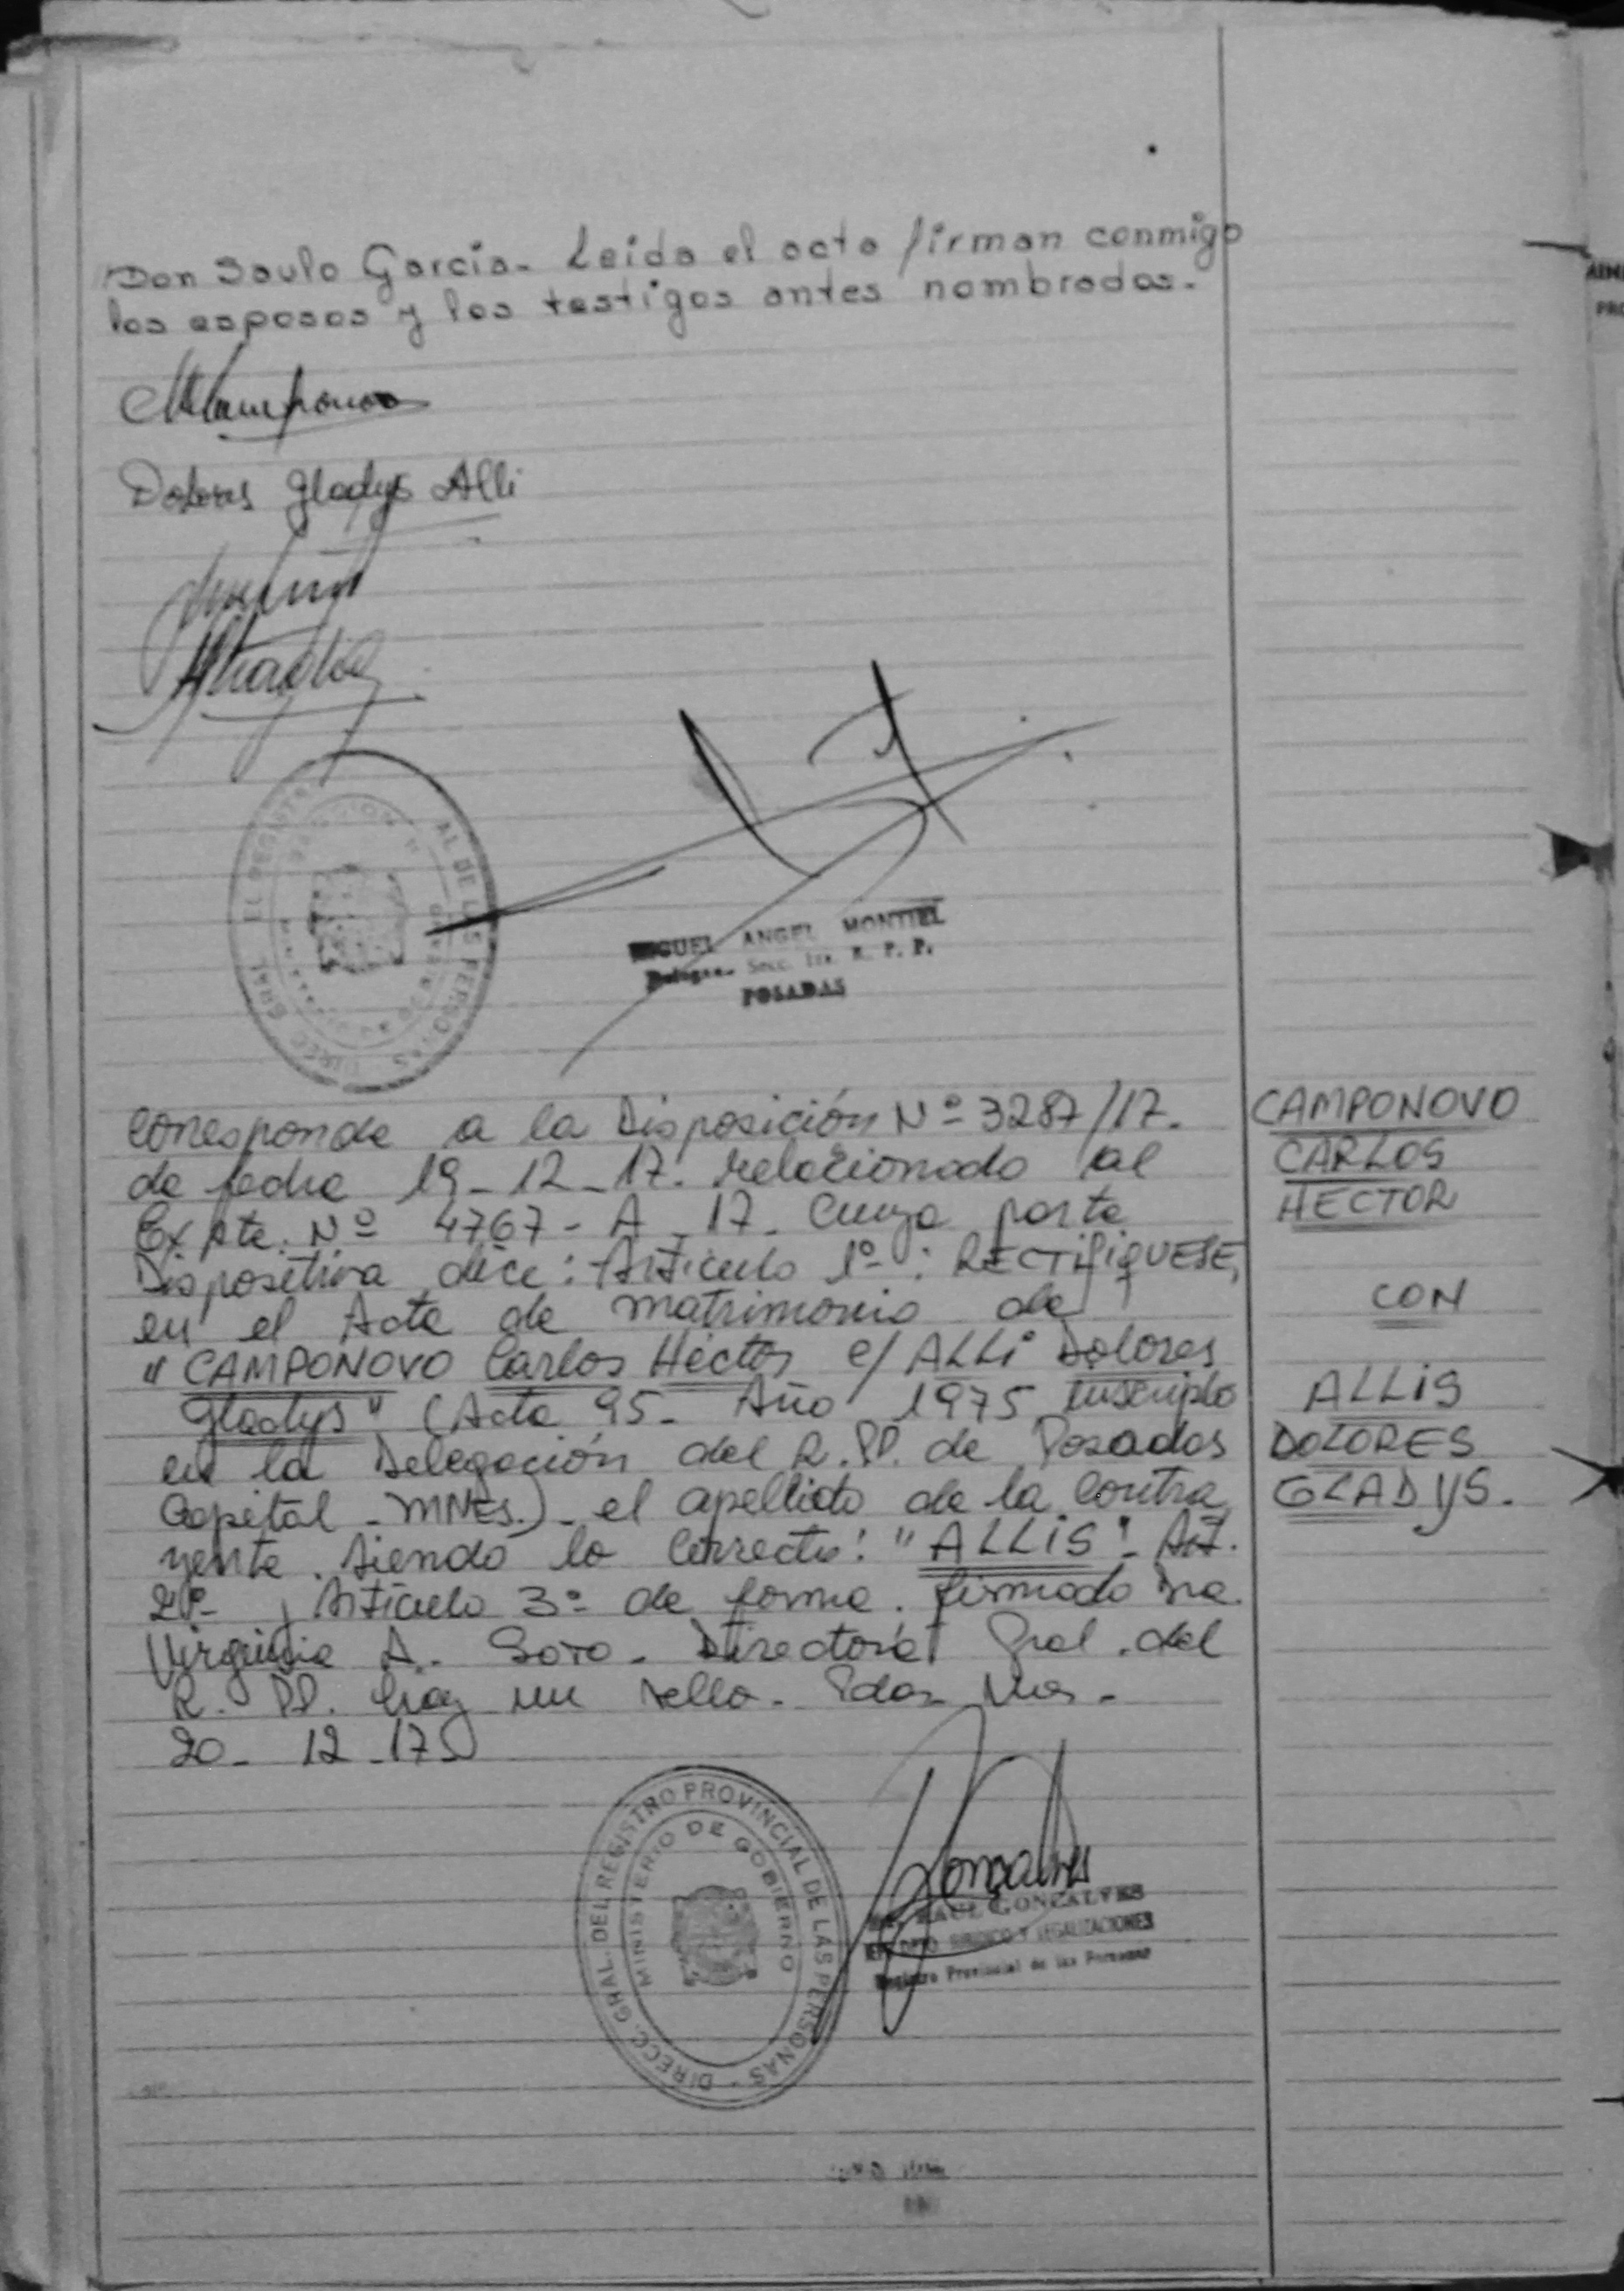 Don Saulo García. Leída el acta firman conmigo
los esposos y los testigos antes nombrados.
Dolores Gladys Alli
MIGUEL ANGEL MONTIEL
Secc. 1ra. R. P. P.
POSADAS
Corresponde a la Disposición Nº 3287/17.
de fecha 19-12-17. relacionado al
Expte. Nº 4767-A-17. Cuya parte
Dispositiva dice: Artículo 1º: RECTIFIQUESE,
en el Acta de matrimonio de
"CAMPONOVO Carlos Héctor c/ ALLi Dolores
Gladys" (Acta 95- Año 1975 inscripto
en la Delegación del R.PP. de Posadas
Capital - MNES.) - el apellido de la Contra
yente. siendo lo correcto: "ALLiS". Art.
2º- y Artículo 3º de forma. firmado Dra.
Virginia A. Soro. Directora Gral. del
R. PP. hay un sello. Pdas. Mnes.
20-12-17
DIRECC. GRAL. DEL REGISTRO PROVINCIAL DE LAS PERSONAS
MINISTERIO DE GOBIERNO
RAUL GONZALVES
DPTO JURIDICO Y LEGALIZACIONES
Registro Provincial de las Personas
CAMPONOVO
CARLOS
HECTOR
CON
ALLiS
DOLORES
GLADYS.